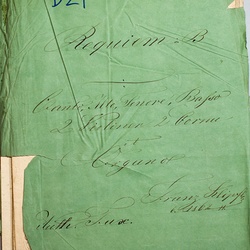 D21
Requiem B
Canto, Alto, Tenore, Basso
2 Violini 2 Corni
et
Organo
Franz